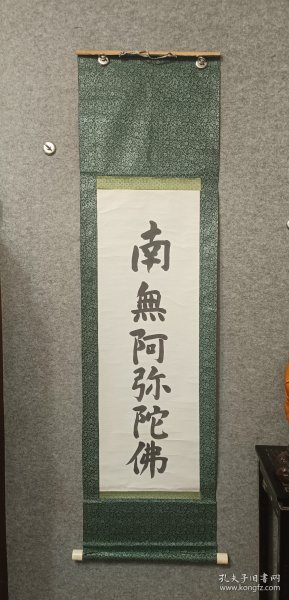 南無阿弥陀佛
孔夫子旧书网
www.kongfz.com